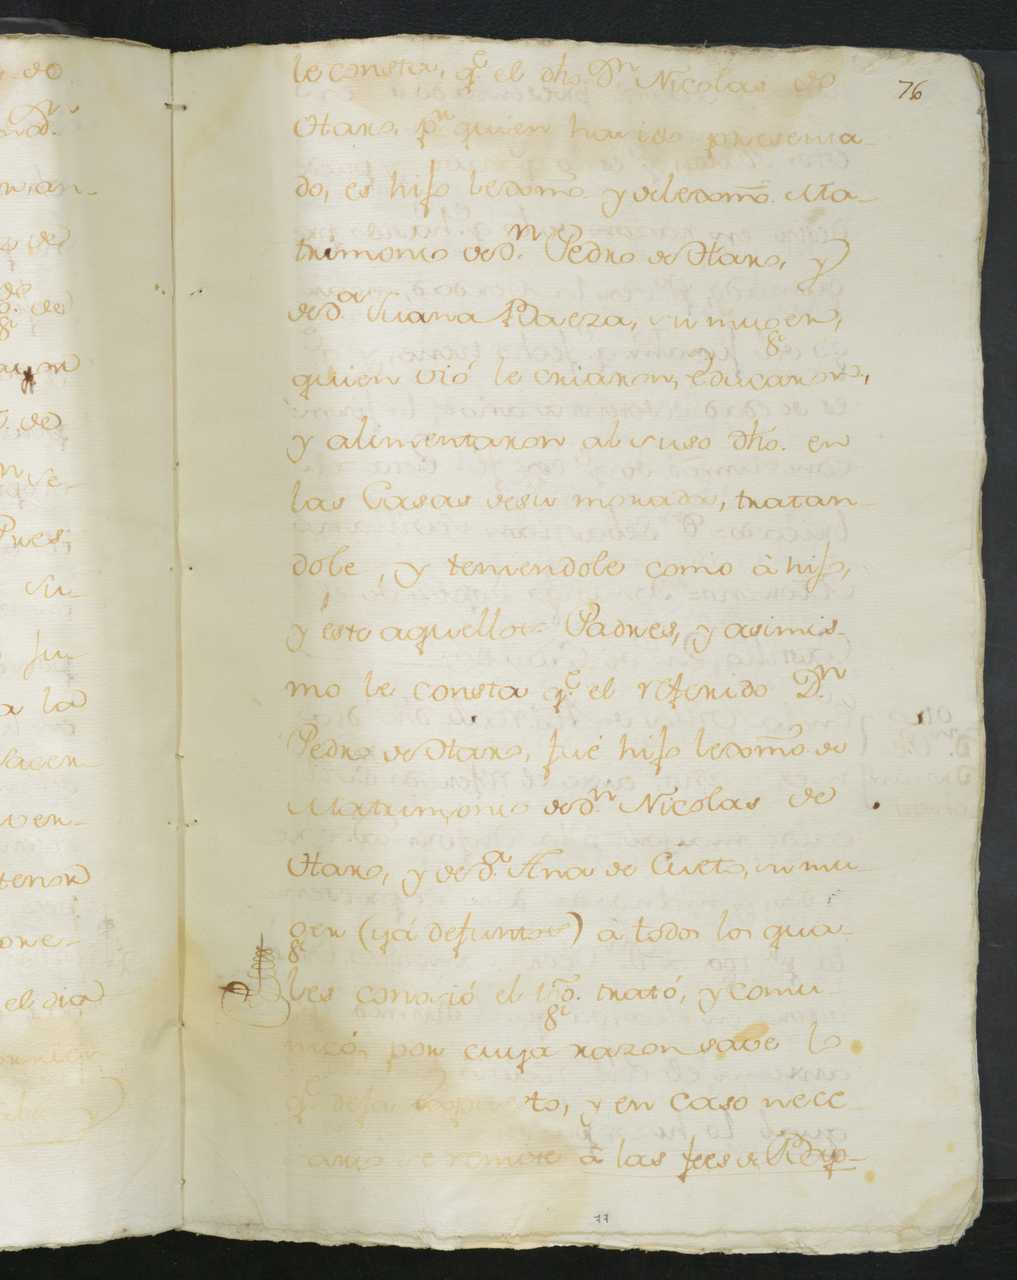 76
le consta, q.e el dho. D.n Nicolas de
Otaro, p.r quien ha sido presenta-
do, es hijo lexmo. y de lexmo. Ma-
trimonio de D.n Pedro de Otaro, y
de D.a Juana Baeza, su muger,
quien vió le criaron, educaron,
y alimentaron al suso dho. en
las Casas de su morada, tratan-
dole, y teniendole como à hijo,
y este aquellos Padres, y asimis-
mo le consta q.e el referido D.n
Pedro de Otaro, fué hijo lexmo. de
Matrimonio de D.n Nicolas de
Otaro, y de D.a Ana de Cueto, su mu-
ger (yá defuntos) à todos los qua-
les conoció el tgo. trató, y comu-
nicó, por cuya razon save lo
q.e deja expuesto, y en caso nece
sario se remite à las fees de Bap-
77